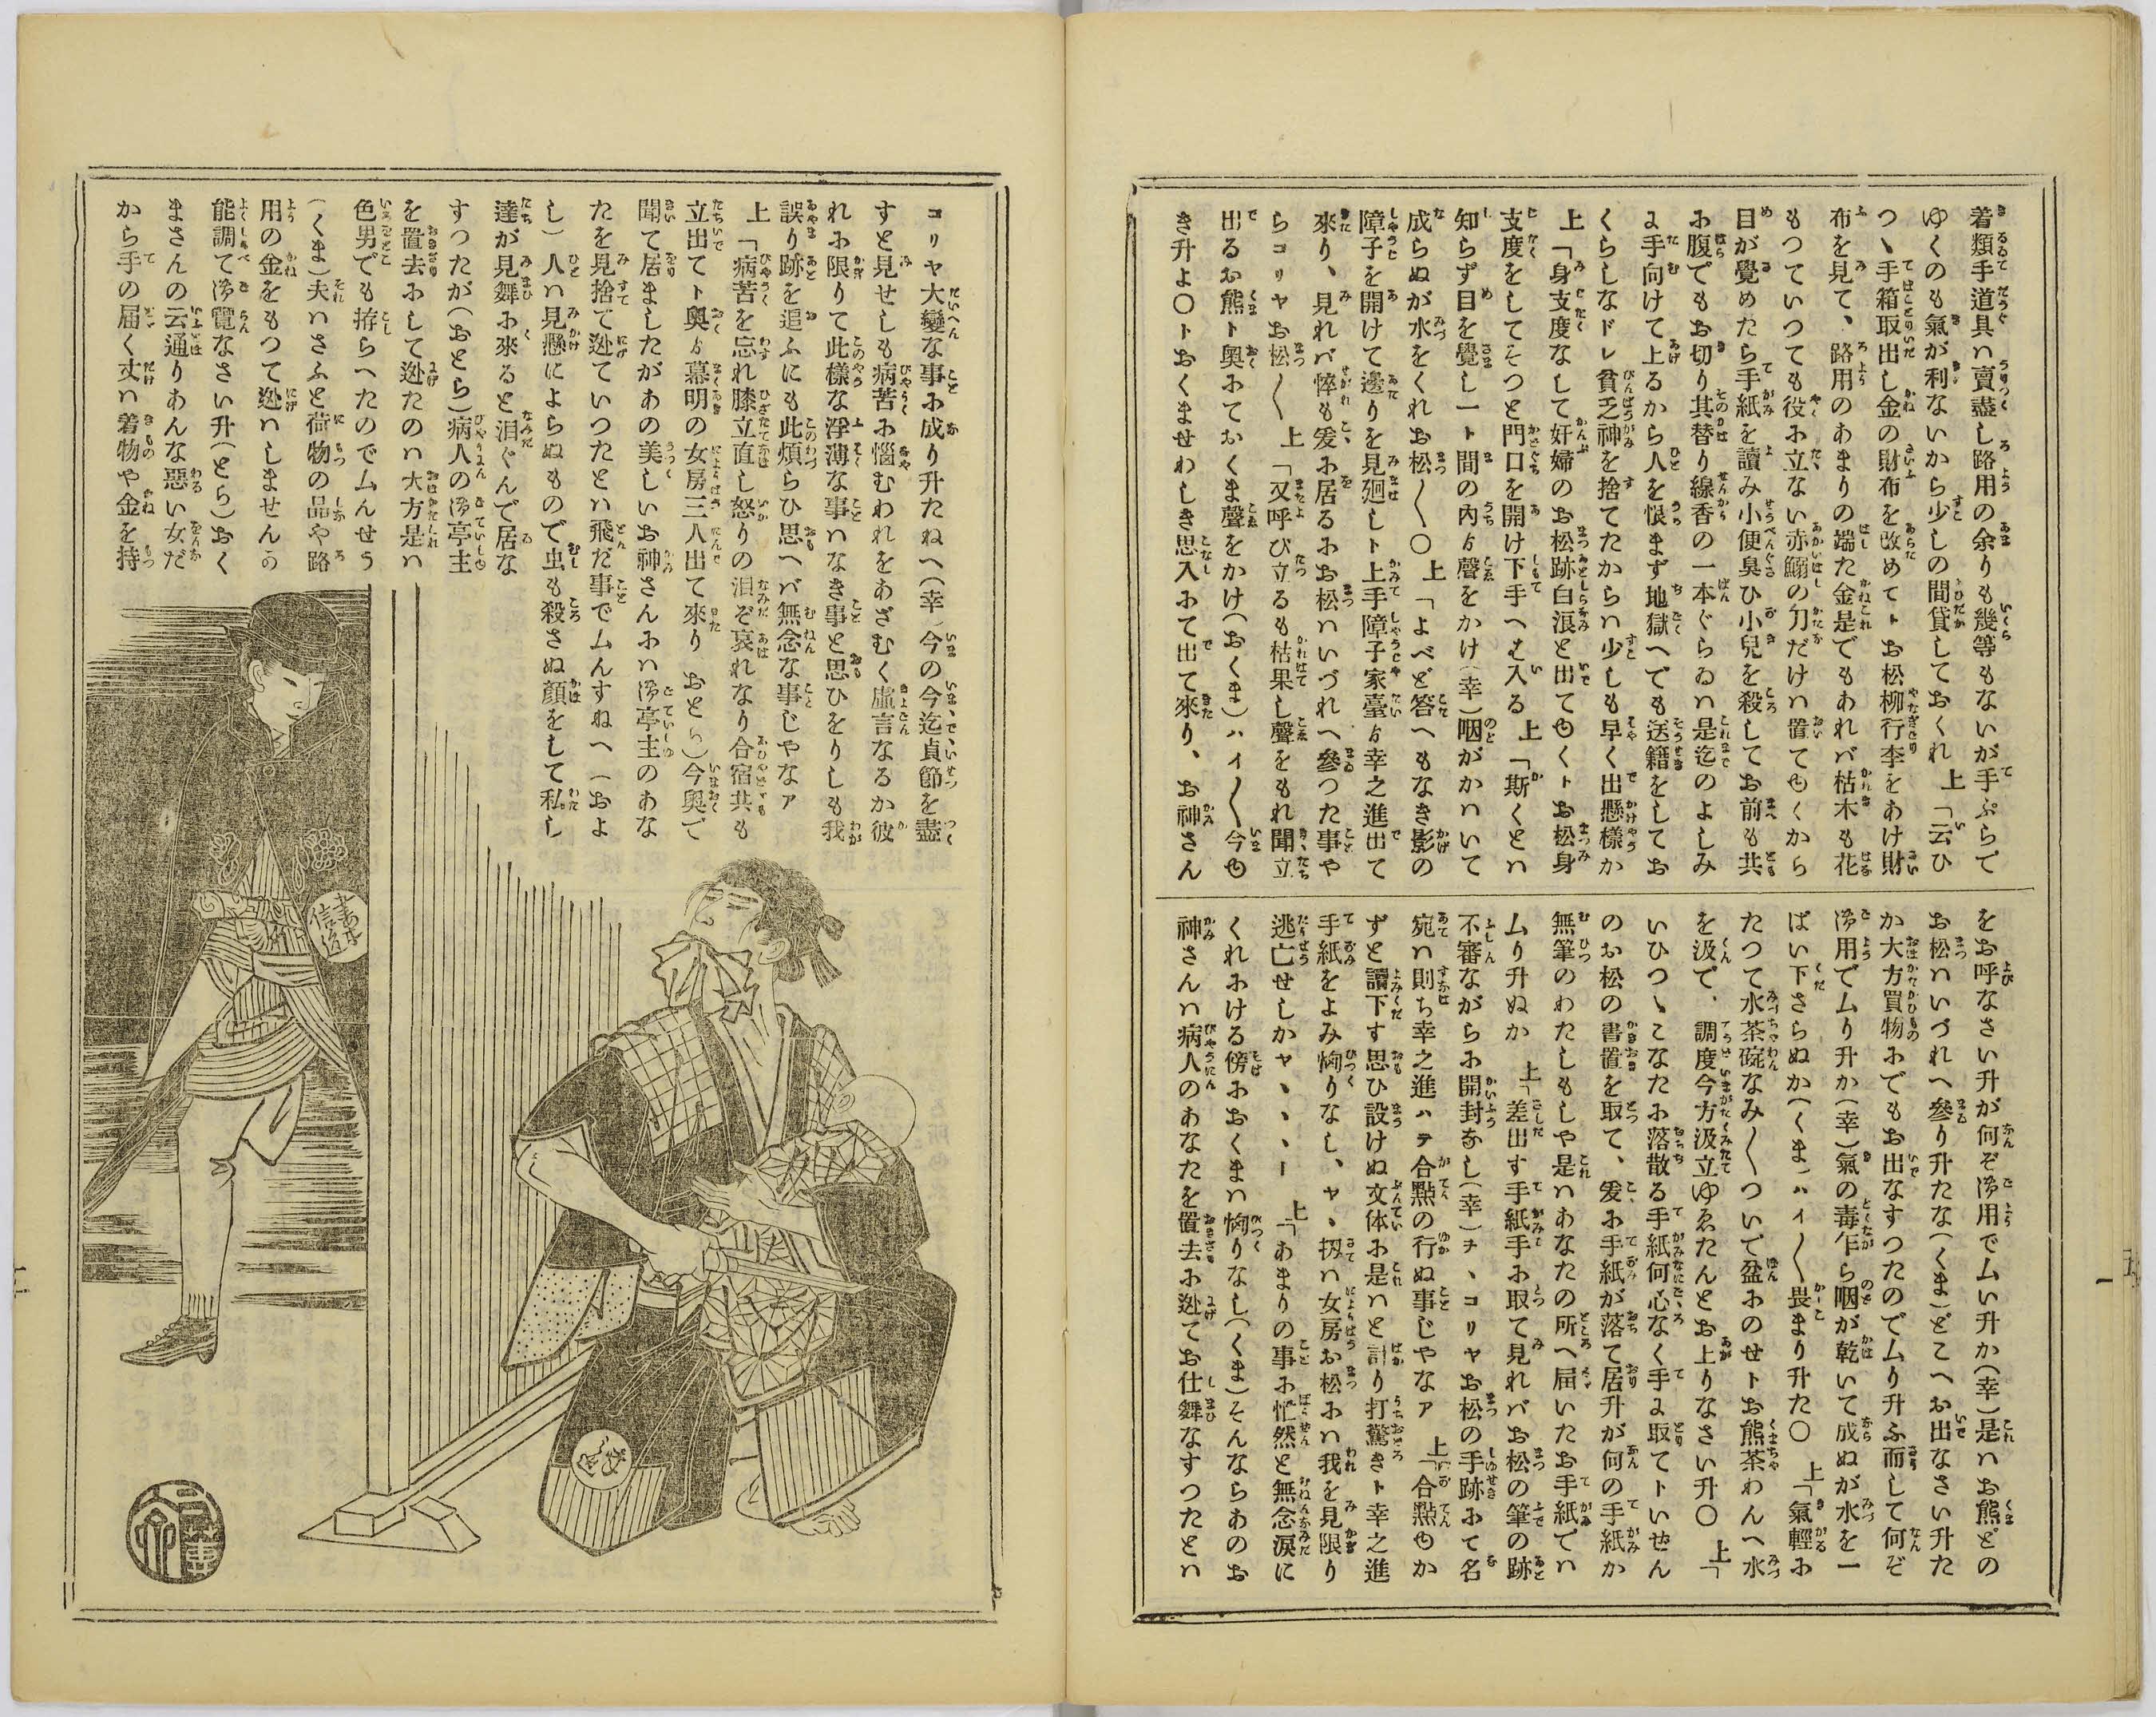 着類手道具ハ賣盡し路用の余りも幾等もないが手ぶらで
ゆくのも氣が利ないから少しの間貸しておくれ 上「云ひ
つゝ手箱取出し金の財布を改めてトお松柳行李をあけ財
布を見て、路用のあまりの端た金是でもあれバ枯木も花
もつていつても役に立ない赤鰯の刀だけハ置てゆくから
目が覺めたら手紙を讀み小便臭ひ小兒を殺してお前も共
に腹でもお切り其替り線香の一本ぐらゐハ是迄のよしみ
に手向けて上るから人を恨まず地獄へでも送籍をしてお
くらしなドレ貧乏神を捨てたからハ少しも早く出懸様か
上「身支度なして奸婦のお松跡白浪と出てゆくトお松身
支度をしてそつと門口を開け下手へは入る 上「斯くとハ
知らず目を覺し一ト間の內ゟ聲をかけ(幸)咽がかハいて
成らぬが水をくれお松〱〇 上「よべど答へもなき影の
障子を開けて邊りを見廻しト上手障子家臺ゟ幸之進出て
來り、見れバ悴も爰に居るにお松ハいづれへ參つた事や
らコリヤお松〱 上「又呼び立るも枯果し聲をもれ聞立
出るお熊ト奧にておくま聲をかけ(おくま)ハイ〱今ゆ
き升よ〇トおくませわしき思入にて出て來り、お神さん
をお呼なさい升が何ぞ御用でムい升か(幸)是ハお熊どの
お松ハいづれへ參り升たな(くま)どこへかお出なさい升た
か大方買物にでもお出なすつたのでムり升ふ而して何ぞ
御用でムり升か(幸)氣の毒乍ら咽が乾いて成ぬが水を一
ぱい下さらぬか(くま)ハイ〱畏まり升た〇 上「氣輕に
たつて水茶碗なみ〱ついで盆にのせトお熊茶わんへ水
を汲で、調度今方汲立ゆゑたんとお上りなさい升〇 上「
いひつゝこなたに落散る手紙何心なく手に取てトいぜん
のお松の書置を取て、爰に手紙が落て居升が何の手紙か
無筆のわたしもしや是ハあなたの所へ届いたお手紙でハ
ムり升ぬか 上「差出す手紙手に取て見れバお松の筆の跡
不審ながらに開封なし(幸)チヽコリヤお松の手跡にて名
宛ハ則ち幸之進ハテ合點の行ぬ事じやなア 上「合點ゆか
ずと讀下す思ひ設けぬ文体に是ハと計り打驚きト幸之進
手紙をよみ恟りなし、ヤヽ扨ハ女房お松にハ我を見限り
逃亡せしかヤヽヽヽー 上「あまりの事に忙然と無念涙に
くれにける傍におくまハ恟りなし(くま)そんならあのお
神さんハ病人のあなたを置去に迯てお仕舞なすつたとハ
コリヤ大變な事に成り升たねへ(幸)今の今迄貞節を盡
すと見せしも病苦に惱むわれをあざむく虛言なるか彼
れに限りて此樣な浮薄な事ハなき事と思ひをりしも我
誤り跡を追ふにも此煩らひ思へバ無念な事じやなア
上「病苦を忘れ膝立直し怒りの泪ぞ哀れなり合宿共も
立出てト奧ゟ幕明の女房三人出て來り(おとら)今奧で
聞て居ましたがあの美しいお神さんにハ御亭主のあな
たを見捨て迯ていつたとハ飛だ事でムんすねへ(およ
し)人ハ見懸によらぬもので虫も殺さぬ顏をして私し
達が見舞に來ると泪ぐんで居な
すつたが(おとら)病人の御亭主
を置去にして迯たのハ大方是ハ
色男でも拵らへたのでムんせう
(くま)夫ハさふと荷物の品や路
用の金をもつて迯ハしませんか
能調て御覽なさい升(とら)おく
まさんの云通りあんな惡い女だ
から手の届く丈ハ着物や金を持